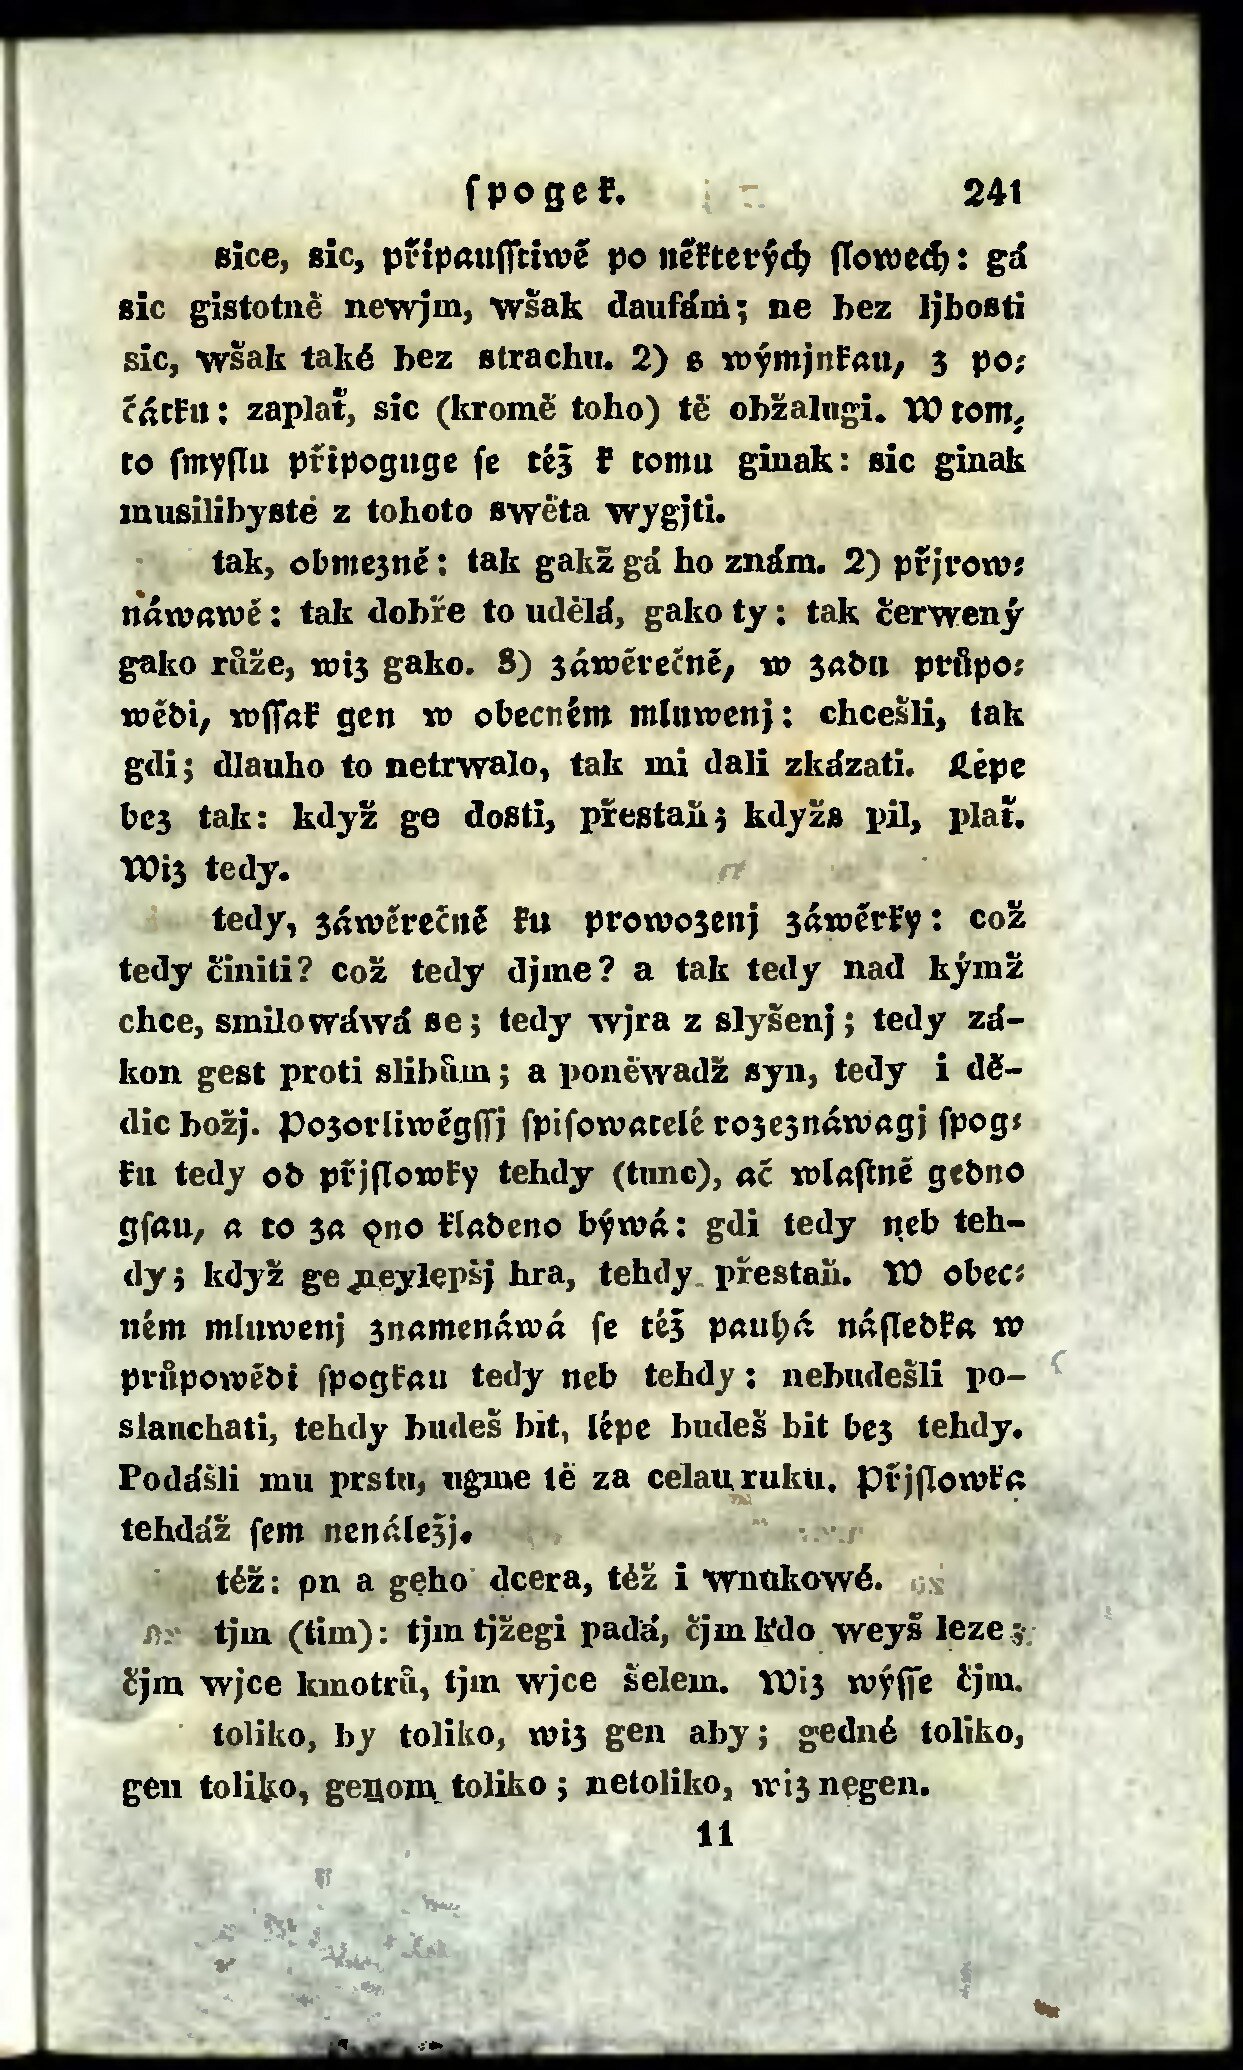 ſpogek. 241
sice, sic, připauſſtiwě po některých ſlowech: gá
sic gistotně newjm, wšak daufám; ne bez ljbosti
sic, wšak také bez strachu. 2) s wýmjnkau, z po⸗
čátku: zaplať, sic (kromě toho) tě obžalugi. W tom⸗
to ſmyſlu připoguge ſe též k tomu ginak: sic ginak
musilibyste z tohoto swěta wygjti.
tak, obmezně: tak gakž gá ho znám. 2) přjrow⸗
náwawě: tak dobře to udělá, gako ty: tak červený
gako růže, wiz gako. 3) záwěrečně, w zadu průpo⸗
wědi, wſſak gen w obecném mluwenj: chcešli, tak
gdi; dlauho to netrwalo, tak mi dali zkázati. Lépe
bez tak: když ge dosti, přestaň; kdyžs pil, plať.
Wiz tedy.
tedy, záwěrečně ku prowozenj záwěrky: což
tedy činiti? což tedy djme? a tak tedy nad kýmž
chce, smilowáwá se; tedy wjra z slyšenj; tedy zá-
kon gest proti slibům; a poněwadž syn, tedy i dě-
dic božj. Pozorliwěgſſj ſpiſowatelé rozeznáwagj ſpog⸗
ku tedy od přjſlowky tehdy (tunc), ač wlaſtně gedno
gſau, a to za ono kladeno býwá: gdi tedy neb teh-
dy; když ge neylepšj hra, tehdy přestaň. W obec⸗
ném mluwenj znamenáwá ſe též pauhá náſledka w
průpowědi ſpogkau tedy neb tehdy: nebudešli po-
slauchati, tehdy budeš bit, lépe budeš bit bez tehdy.
Podášli mu prstu, ugme tě za celau ruku. Přjſlowka
tehdáž ſem nenáležj.
též: on a geho dcera, též i wnukowé.
tjm (tim): tjm tjžegi padá, čjm kdo weyš leze;
čjm wjce kmotrů, tjm wjce šelem. Wiz wýſſe čjm.
toliko, by toliko, wiz gen aby; gedné toliko,
gen toliko, genom toliko; netoliko, wiz negen.
11